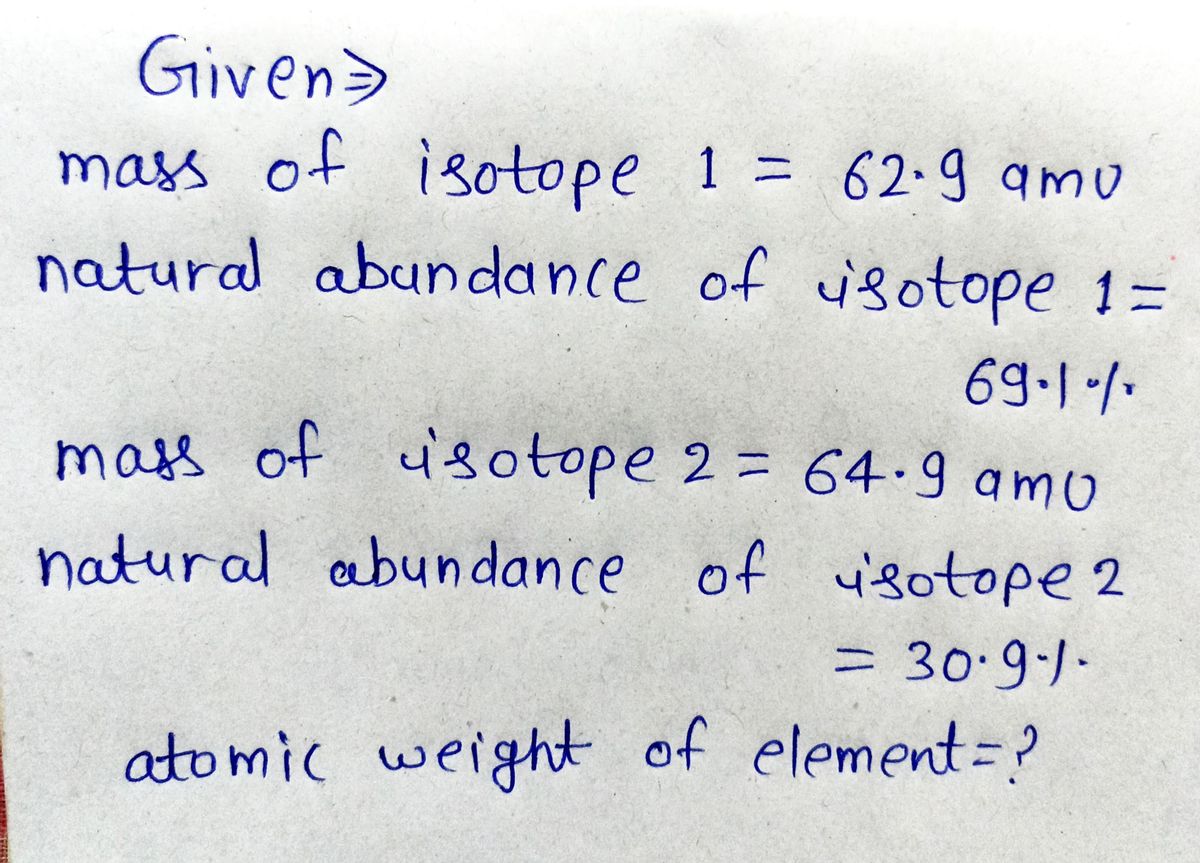 Given⇒
mass of isotope 1 = 62.9 amu
natural abundance of isotope 1 =
69.1%
mass of isotope 2 = 64.9 amu
natural abundance of isotope 2
= 30.9%
atomic weight of element=?